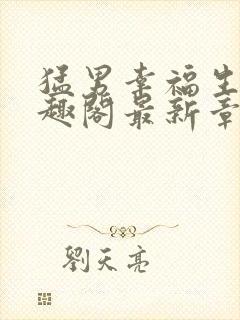 猛男幸福生
趣阁最新章
劉天亮